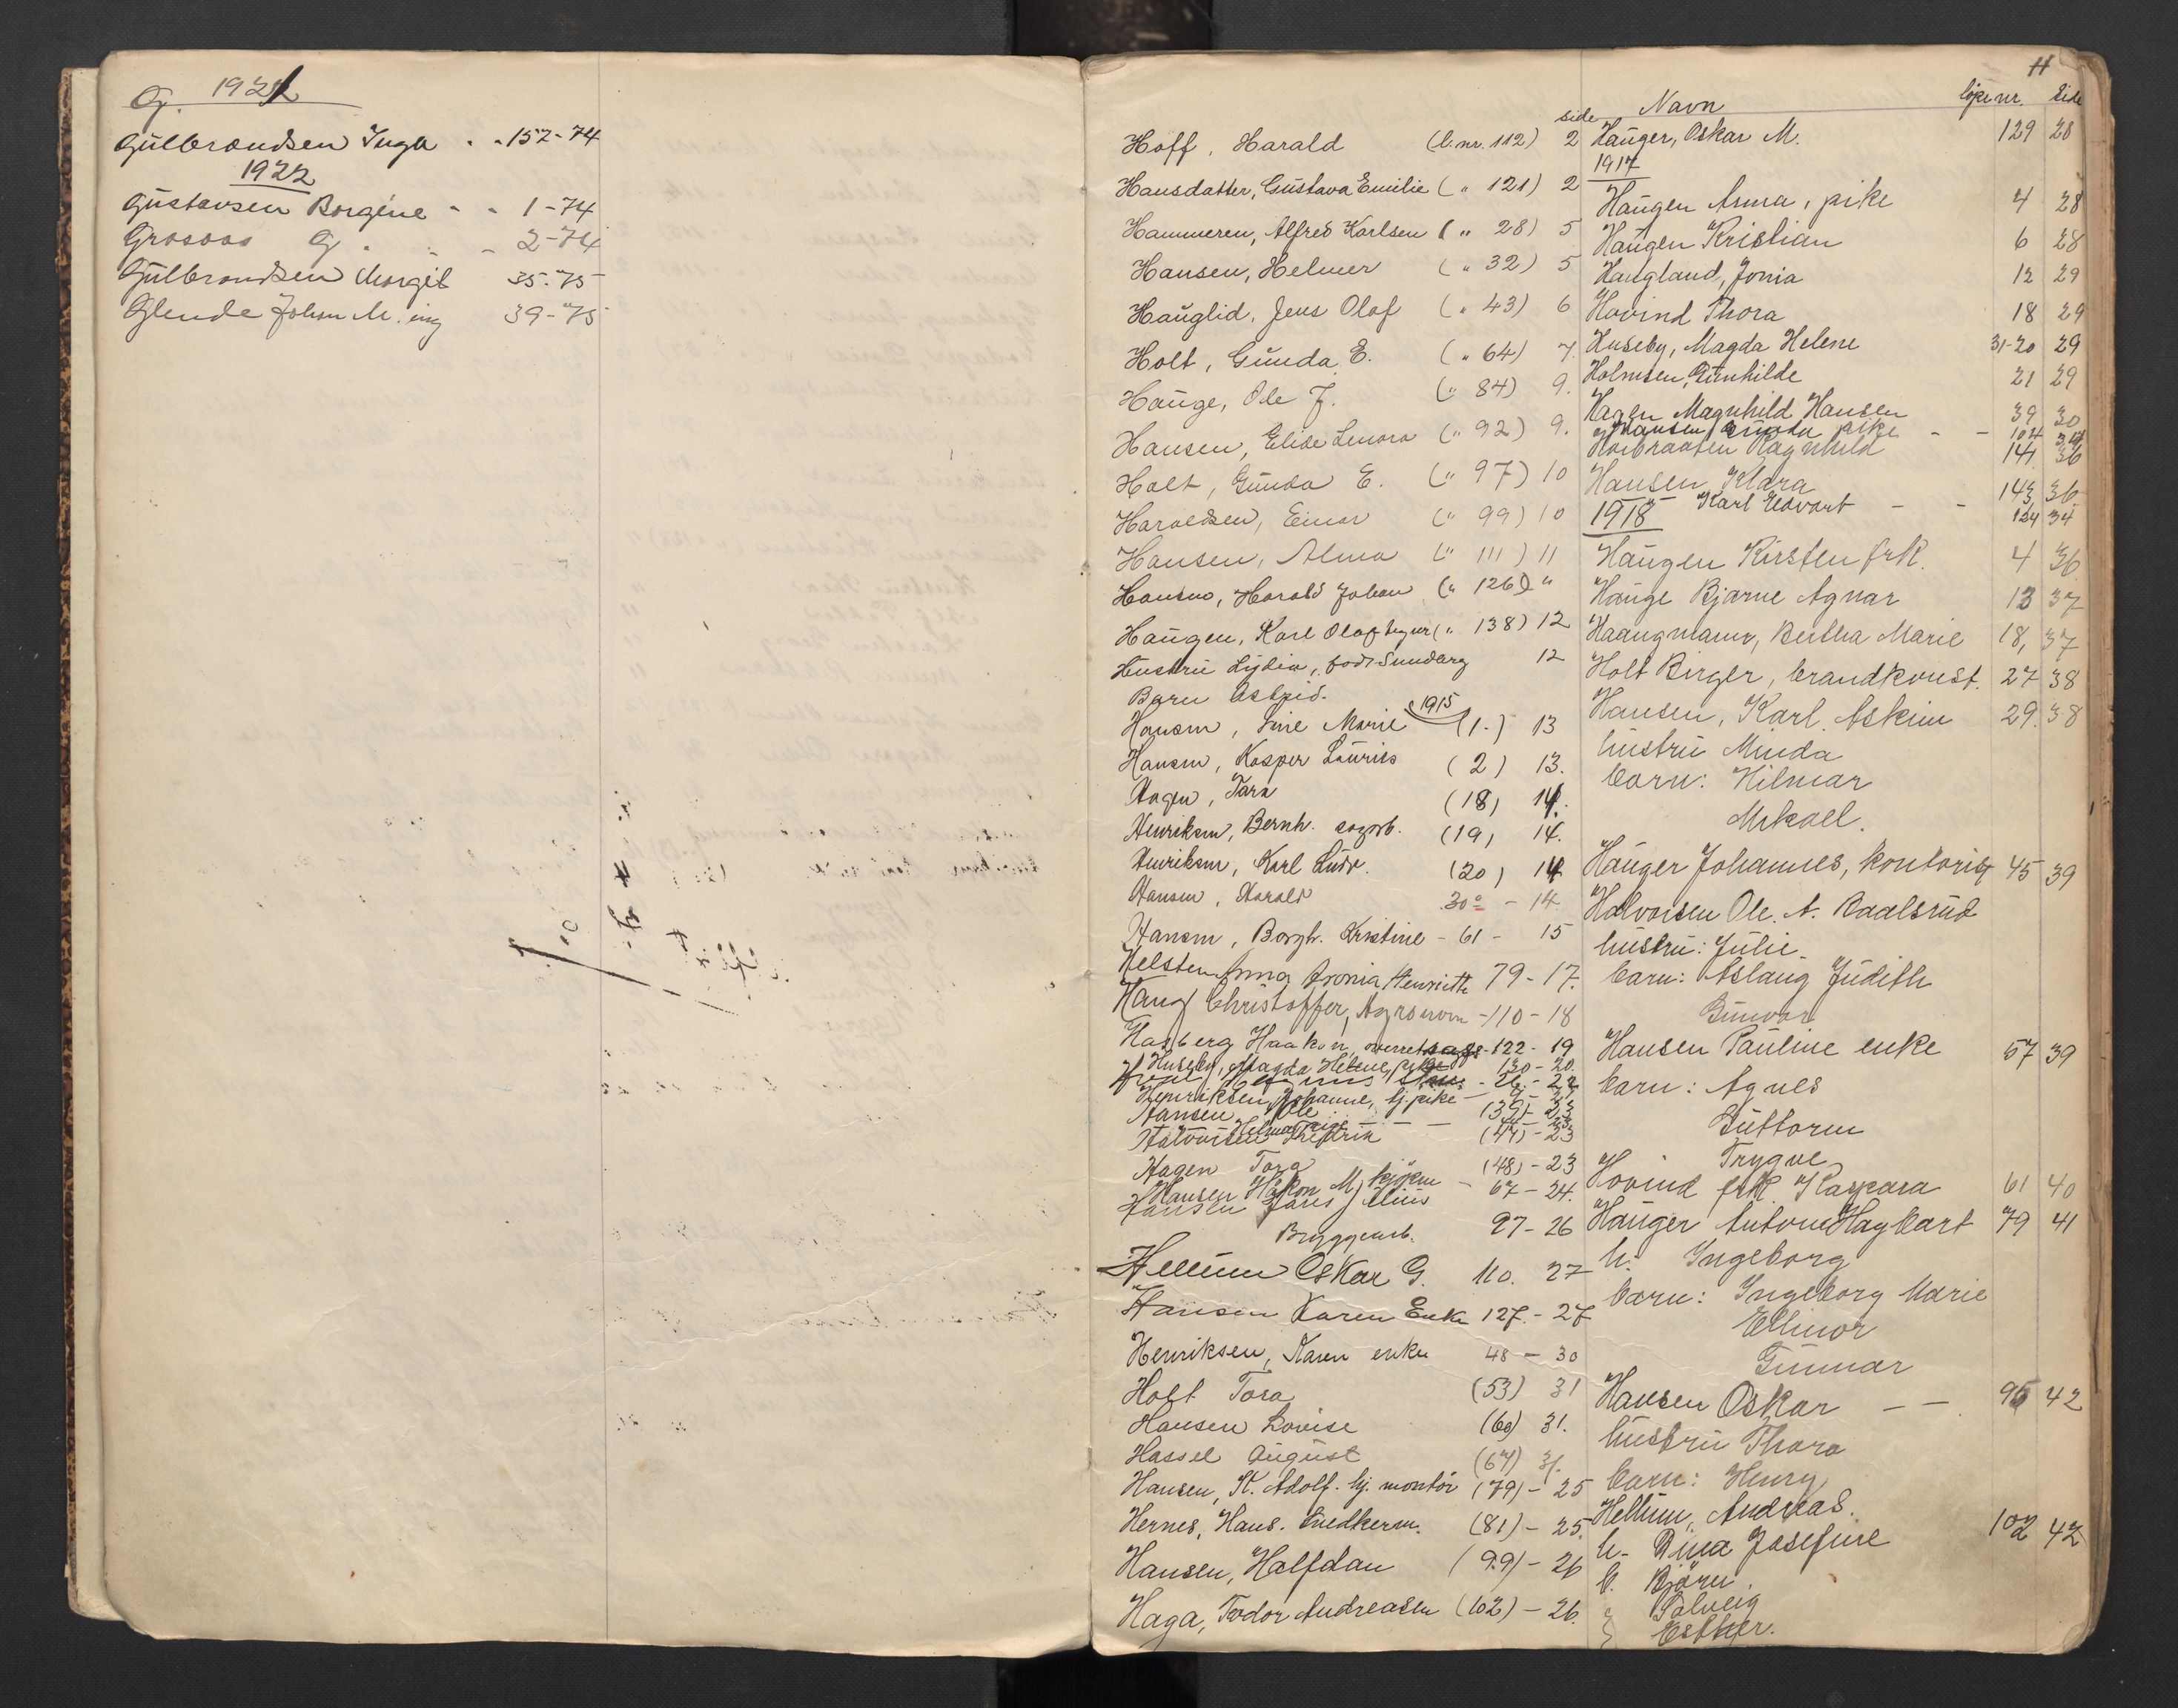 G. 1921
Gulbrandsen Inga - - 157-74
1922
Gustavsen Borgine - - 1-74
Grosaas G. - - 2-74
Gulbrandsen Margit 35-75
Glende Johan M. ing 39-75
H
side
Hoff, Harald (l.nr. 112) 2
Hansdatter, Gustava Emilie (" 121) 2
Hammeren, Alfred Karlsen (" 28) 5
Hansen, Helmer (" 32) 5
Hauglid, Jens Olaf (" 43) 6
Holt, Gunda E. (" 64) 7.
Hauge, Ole J. (" 84) 9.
Hansen, Elise Lenora (" 92) 9.
Holt, Gunda E. (" 97) 10
Haroldsen, Einar (" 99) 10
Hansen, Alma (" 111) 11
Hansen, Harald Johan (" 126) "
Haugen, Karl Olaf (" 138) 12
Hustru Lydia, født Sundberg 12
Barn Astrid.
1915
Hansen, Line Marie (1.) 13
Hansen, Kasper Laurits (2) 13.
Hagen, Tara (18) 14.
Henriksen, Bernh. (19) 14.
Henriksen, Karl Ludv. (20) 14
Hansen, Harald 30a - 14
Hansen, Borgh. Kristine - 61 - 15
Helsten Anna Henriette 79-17.
Haug Christoffer, Agronom -110-18
Haakon, 122-19
Huseby, Magda Helene, pike 130-20.
Henriksen, Johanne, tj. pike
Hansen, Ole (39)-23
Halvorsen Fredrik (44)-23
Hagen Tora (48)-23
Hansen Håkon M. - 67-24.
Hansen Hans Julius
Bryggearb. 97-26
Hellum Oskar G. 110. 27
Hansen Karen Enke 127.-27
Henriksen, Karen enke 48-30
Holt Tora (53) 31
Hansen Lovise (60) 31.
Hassel August (67) 31.
Hansen, K. Adolf. tj. montör (79)-25
Hernes, Hans. Snedkerm. (81)-25.
Hansen, Halfdan (99)-26
Haga, Todor Andreasen (102)-26.
Navn løpenr. Side
Hauger, Oskar M. 129 28
1917
Haugen Anna, pike 4 28
Haugen Kristian 6 28
Haugland, Jonia 12 29
Hovind Thora 18 29
Huseby, Magda Helene 31-20 29
Holmsen, Gunhilde 21 29
Hagen Magnhild Hansen 39 30
Hansen Gunda pike - - 104 34
Ragnhild 141 36
Hansen Klara 143 36
1918 Karl Edvart - - 124 34
Haugen Kirsten frk. 4 36
Hauge Bjarne Agnar 13 37
Haangmann, Bertha Marie 18, 37
Holt Birger, brandkonst. 27 38
Hansen, Karl. Askim 29. 38
hustru Minda
barn: Hilmar
Mikael.
Hauger Johannes, kontorist 45 39
Halvorsen Ole. A. Raalsrud
hustru: Julie.
barn: Aslaug Judith
Gunvor
Hansen Pauline enke 57 39
barn: Agnes
Guttorm
Trygve
Hovind frk. Kaspara 61 40
Hauger Anton Hagbart 79 41
h. Ingeborg
barn: Ingeborg Marie
Ellinor
Gunnar
Hansen Oskar - - 95 42
hustru Thora
barn: Henry
Hellum, Andreas. 102 42
h. Dina Josefine
b. Björn.
" Solveig
" Esther.